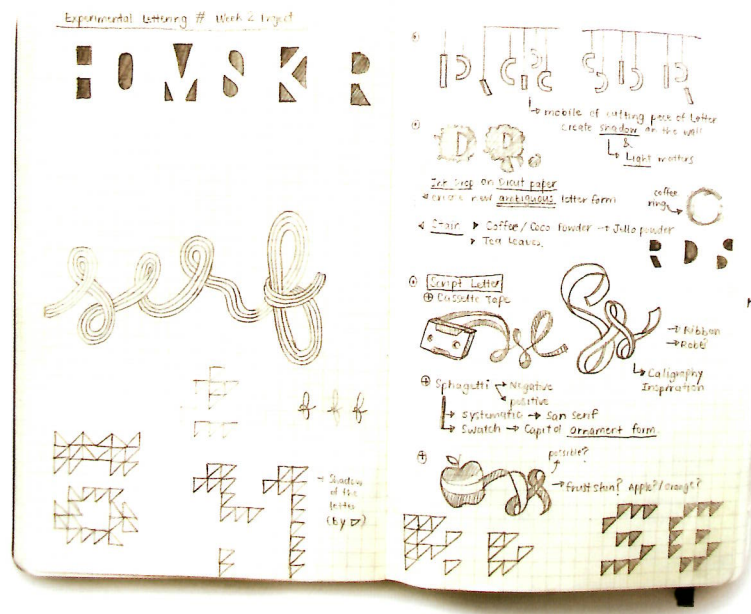 Experimental Lettering # Week 2 Project
HOMSKR
serf
Shadow
of the
letter
(by ▽)
mobile of cutting piece of letter
create shadow on the wall
&
Light matters
D D
Ink Drop on Sucut paper
create new ambiguous letter form
coffee
ring
Stain Coffee / Coco Powder → Jello powder
Tea Leaves.
R D S
Script Letter
Cassette Tape
→ Ribbon
Caligraphy
Inspiration
Sphagetti → Negative
positive
→ Systematic → San Serif
→ Swatch → Capitol ornament form.
possible?
→ fruit skin? Apple?/orange?